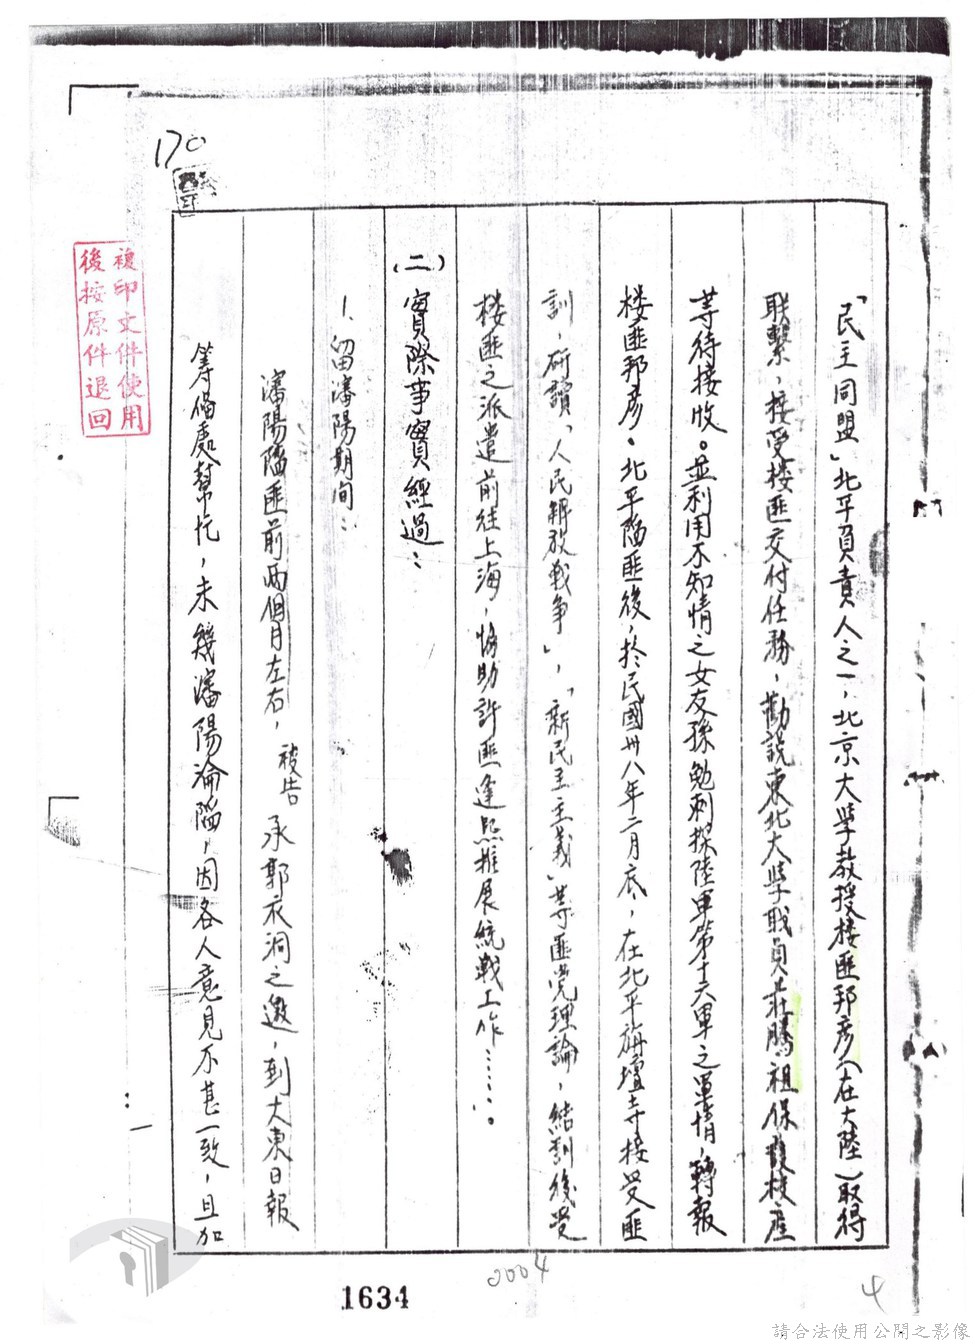 170
複印文件使用
後按原件退回
「民主同盟」北平負責人之一，北京大學教授楼匪邦彥（在大陸）取得
联繫，接受楼匪交付任務，勸說東北大學職員莊騰祖保護校產
等待接收。並利用不知情之女友孫勉刺探陸軍第十六軍之軍情，轉報
楼匪邦彥。北平陷匪後，於民國卅八年二月底，在北平旃壇寺接受匪
訓，研讀「人民解放战争」，「新民主主義」等匪党理論，結訓後受
楼匪之派遣前往上海，協助許匪逢熙推展統战工作……。
(二)實際事實經過：
1、留瀋陽期间：
瀋陽陷匪前兩個月左右，被告承郭衣洞之邀，到大東日報
筹备處幫忙，未幾瀋陽淪陷，因各人意見不甚一致，且加
1634
0004
4
請合法使用公開之影像